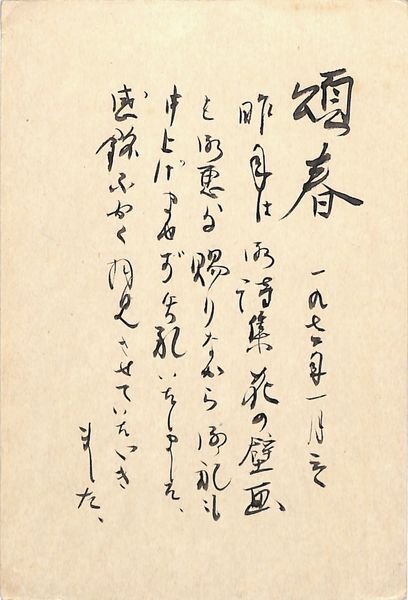 頌春
一九七 年一月
昨年は御詩集花の壁画
を御恵与賜りながら御礼も
申上げませず失礼いたしました、
感銘ふかく拝見させていたゞき
ました、